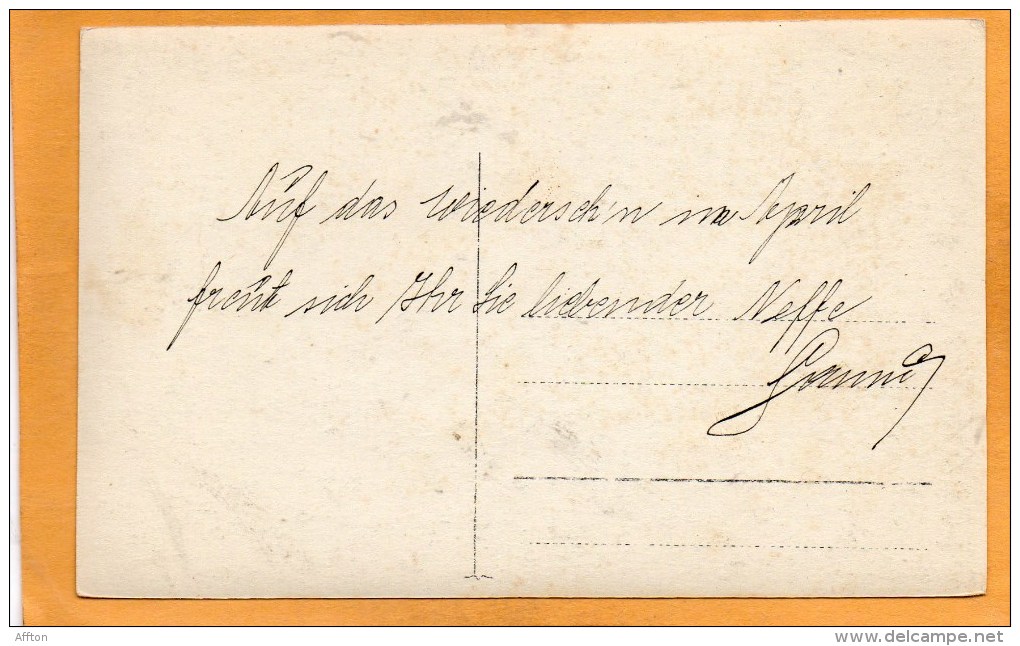 Auf das Wiederseh'n im April
freut sich Ihr Sie liebender Neffe
Hanns
Affton
www.delcampe.net